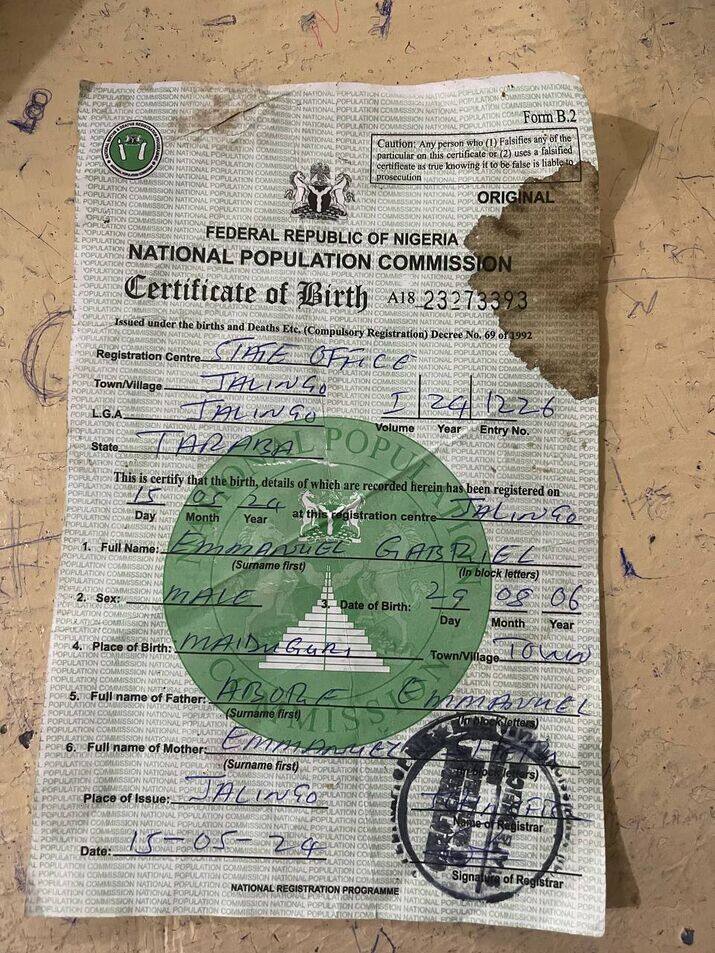 Form B.2
Caution: Any person who (1) Falsifies any of the
particular on this certificate or (2) uses a falsified
certificate as true knowing it to be false is liable to
prosecution
ORIGINAL
FEDERAL REPUBLIC OF NIGERIA
NATIONAL POPULATION COMMISSION
Certificate of Birth A18 23273393
Issued under the births and Deaths Etc. (Compulsory Registration) Decree No. 69 of 1992
Registration Centre STATE OFFICE
Town/Village JALINGO
L.G.A JALINGO I 24 1226
Volume Year Entry No.
State TARABA
This is certify that the birth, details of which are recorded herein has been registered on
15 05 24 at this registration centre JALINGO
Day Month Year
1. Full Name: EMMANUEL GABRIEL
(Surname first) (In block letters)
2. Sex: MALE 3. Date of Birth: 29 08 06
Day Month Year
4. Place of Birth: MAIDUGURI Town/Village TOWN
5. Full name of Father: EMMANUEL
(Surname first) (In block letters)
6. Full name of Mother:
(Surname first) (In block letters)
Place of Issue: JALINGO
Name of Registrar
Date: 15-05-24
Signature of Registrar
NATIONAL REGISTRATION PROGRAMME